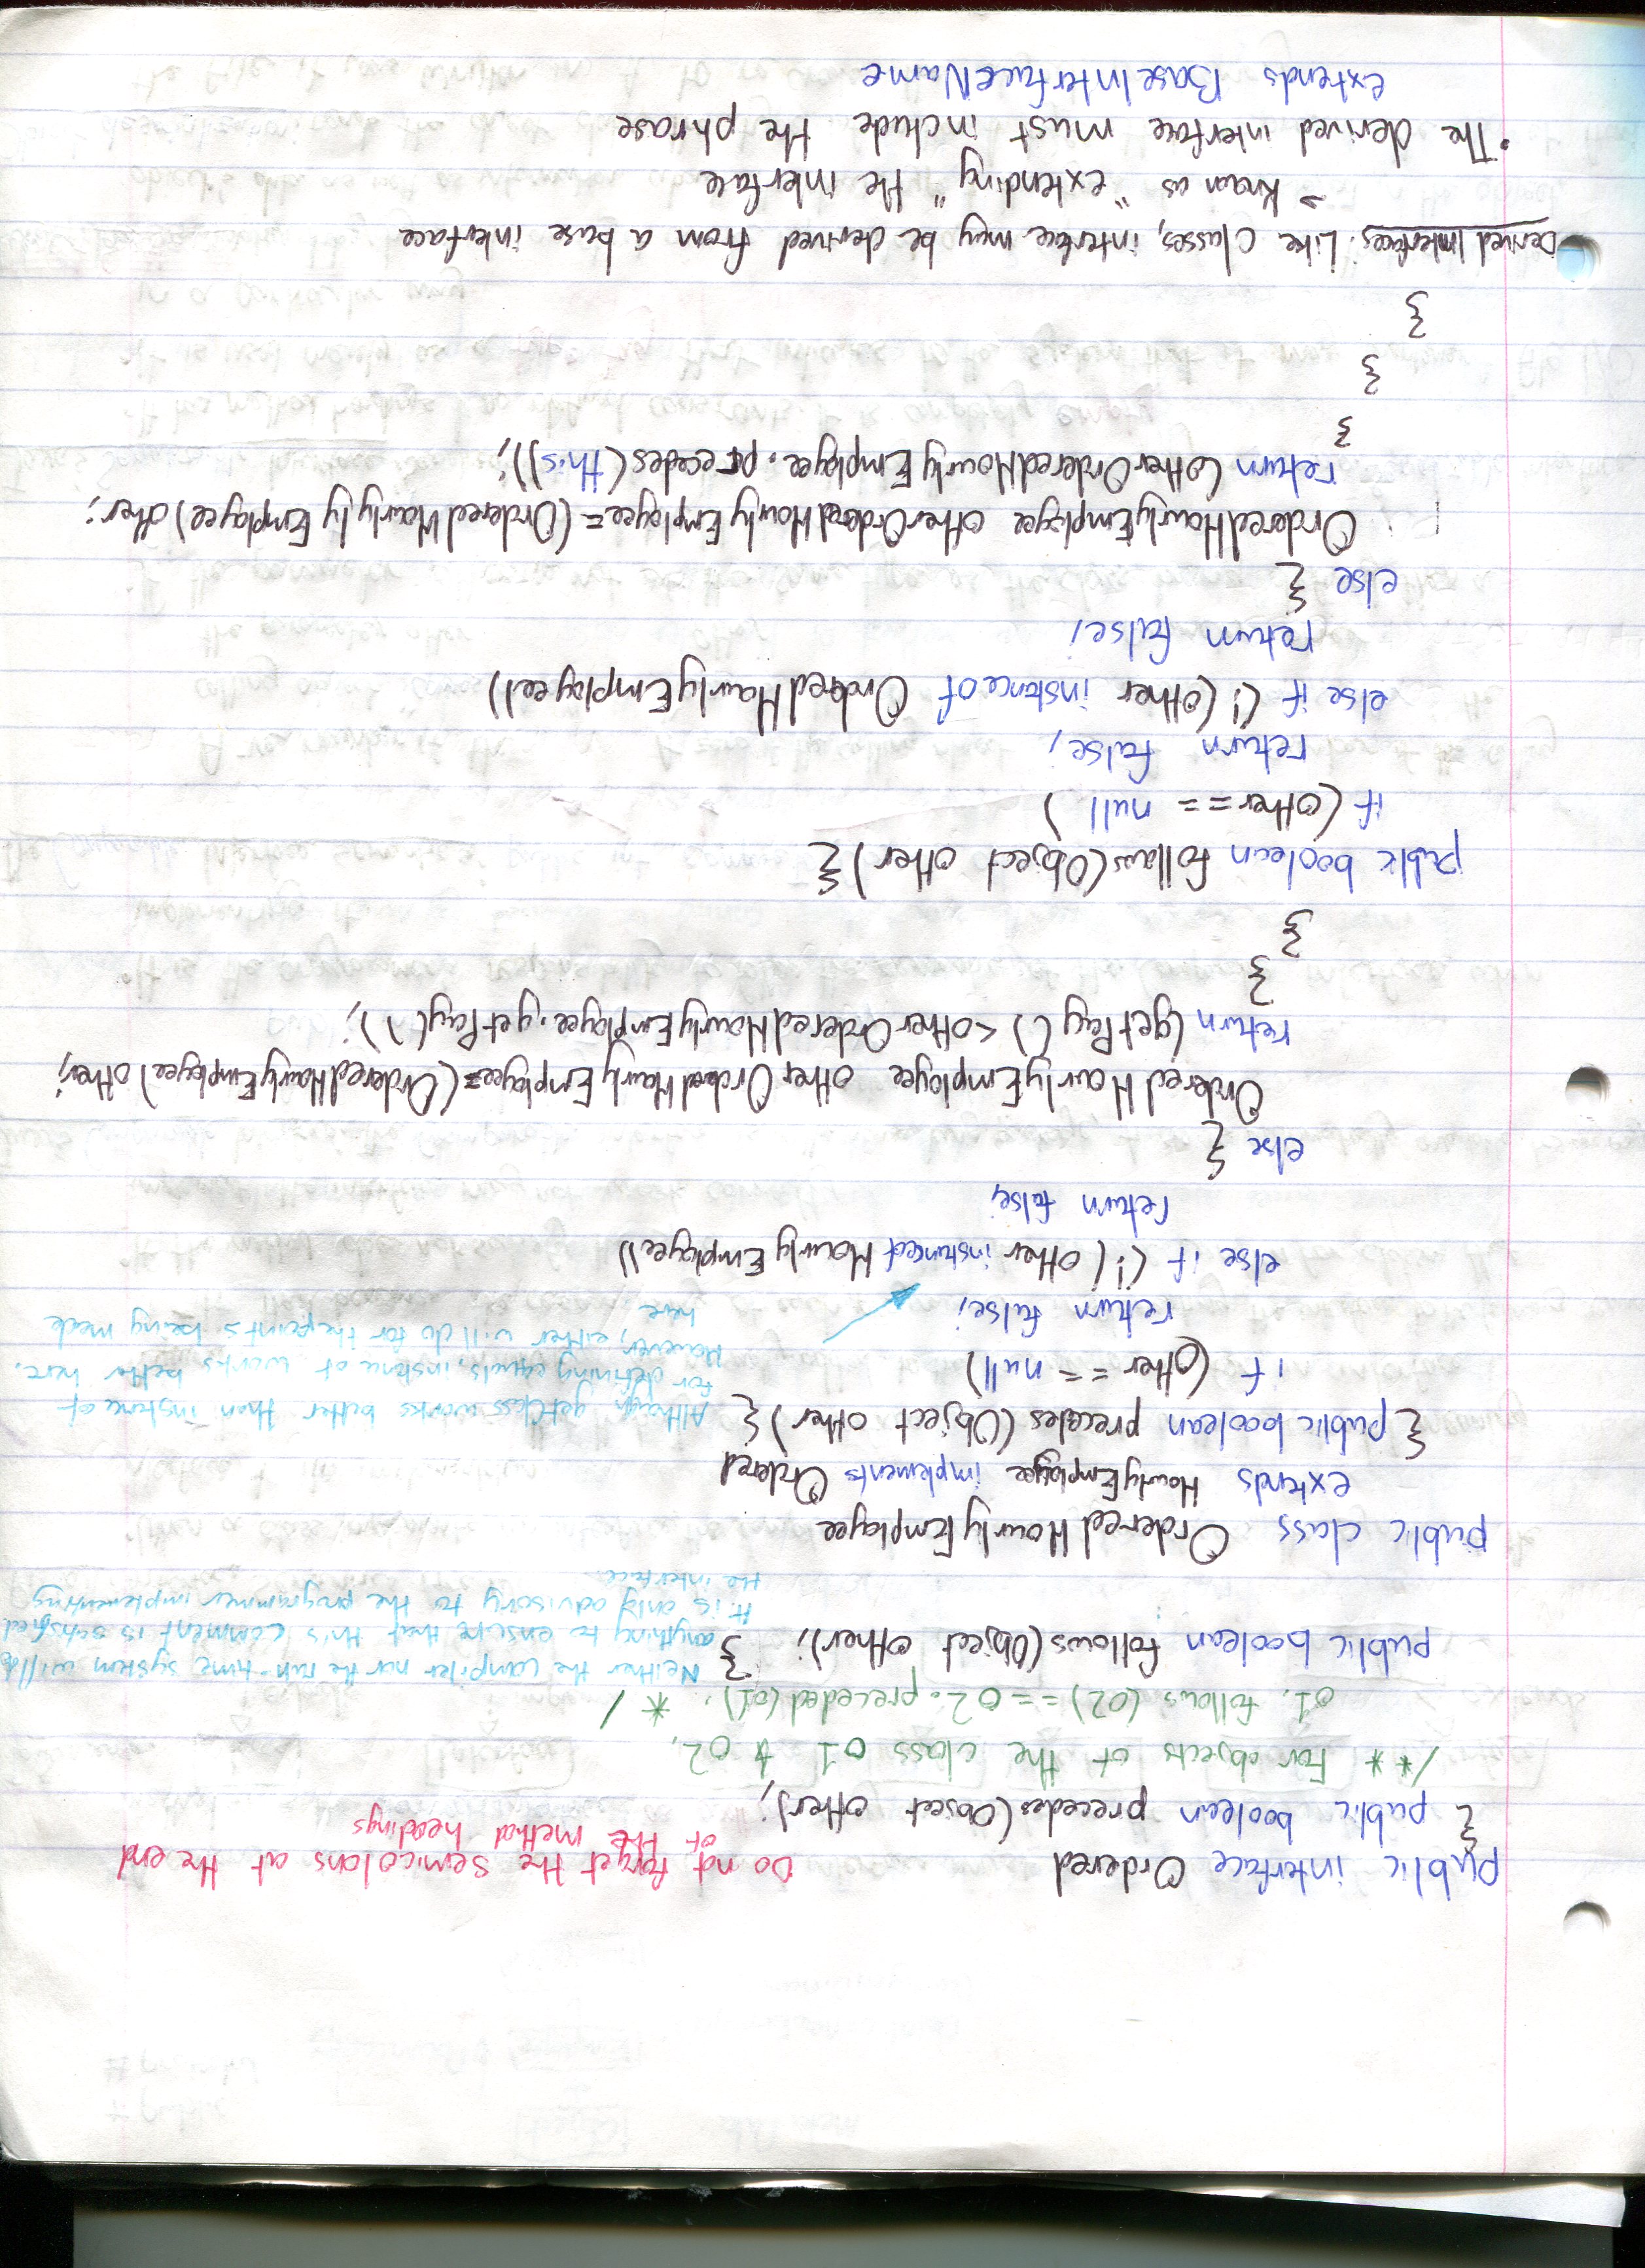 public interface Ordered
Do not forget the semicolons at the end
of the method headings
{ public boolean precedes(Object other);
/** For objects of the class o1 & o2,
o1. follows (o2) == o2. preceded(o1). */
public boolean follows(Object other); }
Neither the compiler nor the run-time system will do
anything to ensure that this comment is satisfied
It is only advisory to the programmer implementing
the interface
public class OrderedHourlyEmployee
extends HourlyEmployee implements Ordered
{ public boolean precedes(Object other) {
Although getClass works better than instance of
for defining equals, instance of works better here.
However, either will do for the points being made
here
if (other == null)
return false;
else if (!(other instanceof HourlyEmployee))
return false;
else {
OrderedHourlyEmployee otherOrderedHourlyEmployee=(OrderedHourlyEmployee) other;
return (getPay() < otherOrderedHourlyEmployee.getPay());
}
}
public boolean follows(Object other) {
if (other == null)
return false;
else if (!(other instanceof OrderedHourlyEmployee))
return false;
else {
OrderedHourlyEmployee otherOrderedHourlyEmployee=(OrderedHourlyEmployee) other;
return (otherOrderedHourlyEmployee.precedes(this));
}
}
}
Derived Interfaces: Like Classes, interface may be derived from a base interface
→ Known as "extending" the interface
• The derived interface must include the phrase
extends BaseInterfaceName